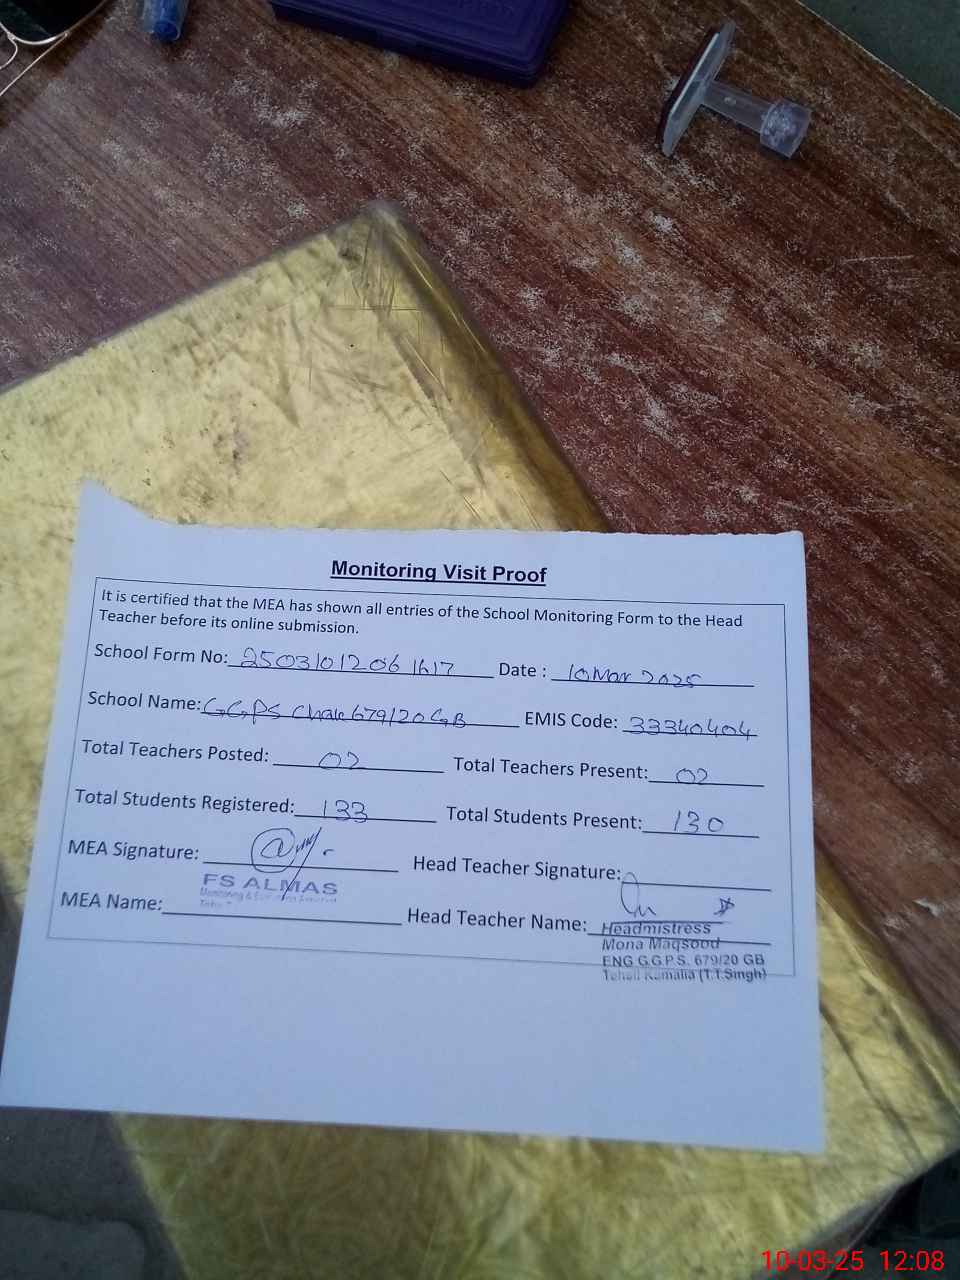 Monitoring Visit Proof
It is certified that the MEA has shown all entries of the School Monitoring Form to the Head
Teacher before its online submission.
School Form No: 25031012061617 Date : 10 Mar 2025
School Name: GGPS Chak 679/20 GB EMIS Code: 33340404
Total Teachers Posted: 02 Total Teachers Present: 02
Total Students Registered: 133 Total Students Present: 130
MEA Signature: Head Teacher Signature:
FS ALMAS
Monitoring &
MEA Name: Head Teacher Name:
Headmistress
Mona Maqsood
ENG G.G.P.S. 679/20 GB
Tehsil Kamalia (T.T.Singh)
10-03-25 12:08